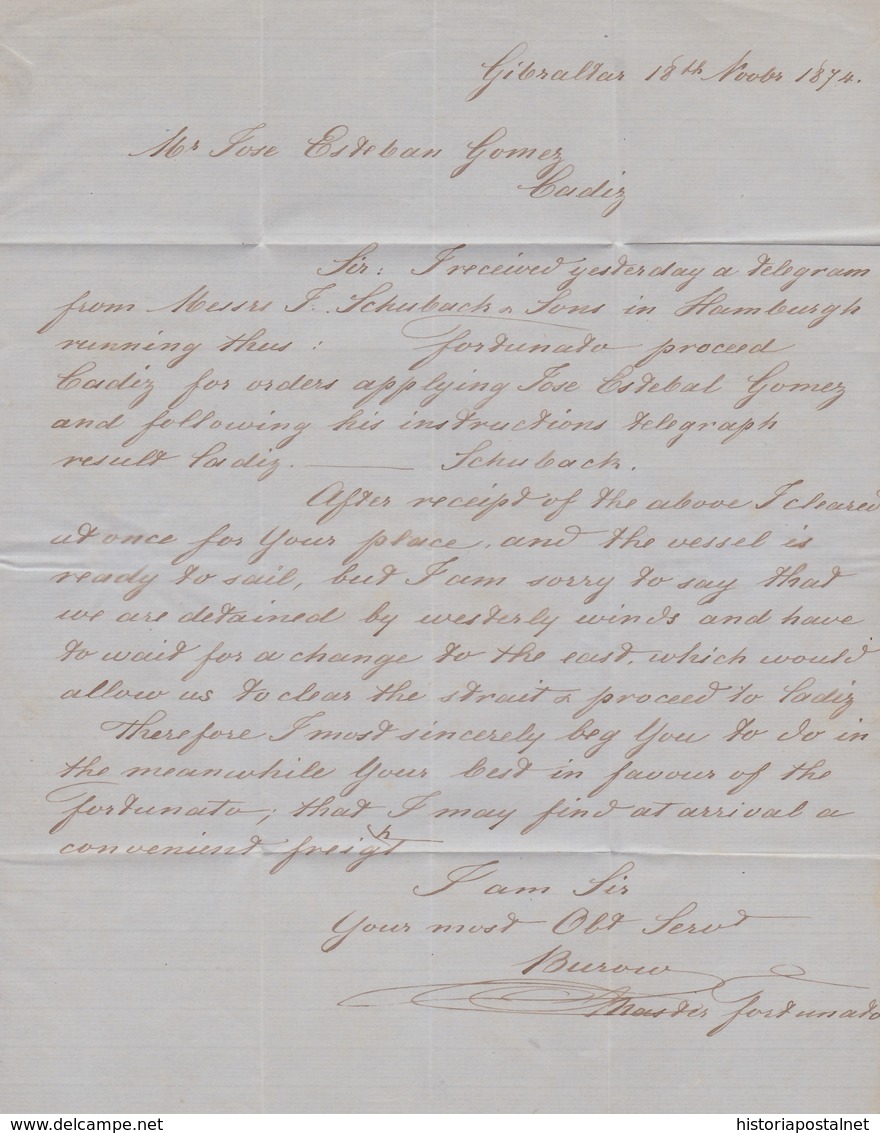 Gibraltar 18th Novbr 1874.
Mr Jose Esteban Gomez
Cadiz
Sir: I received yesterday a telegram
from Messrs J. Schuback & Sons in Hamburgh
running thus: Fortunato proceed
Cadiz for orders applying Jose Estebal Gomez
and following his instructions telegraph
result Cadiz. —— Schuback.
After receipt of the above I cleared
at once for Your place, and the vessel is
ready to sail, but I am sorry to say that
we are detained by westerly winds and have
to wait for a change to the east, which would
allow us to clear the strait & proceed to Cadiz
Therefore I most sincerely beg You to do in
the meanwhile Your best in favour of the
Fortunato; that I may find at arrival a
convenient freight
I am Sir
Your most Obt Servt
Burow
Master Fortunato
www.delcampe.net
historiapostalnet